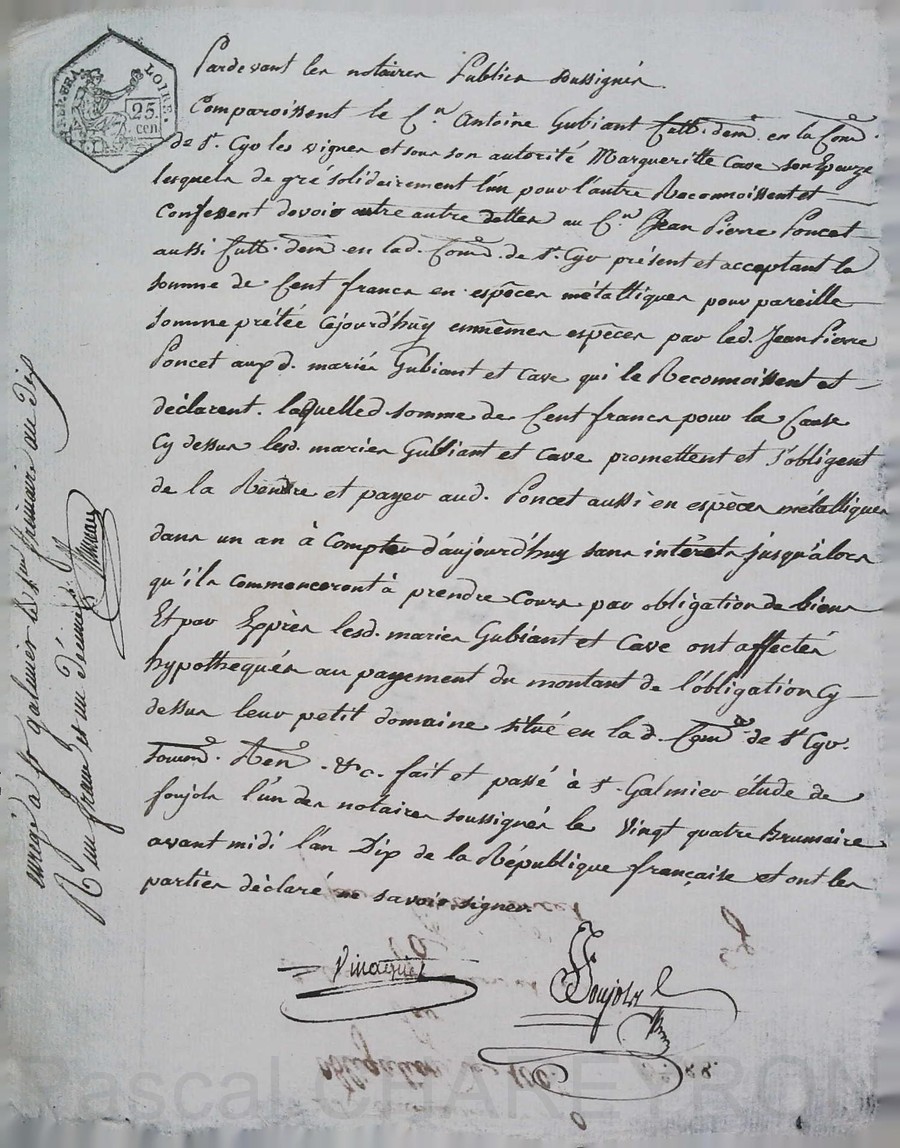 RÉP. FRA
LOIRE.
25.
cen
Pardevant les notaires Publics soussignés
Comparoissent le C.en Antoine Gubiant Cultt. dem. en la Com.e
de St. Cyr les vignes et sous son autorité Margueritte Cave son Epouze
lesquels de gré solidairement l'un pour l'autre Reconnoissent et
Confessent devoir outre autre dettes au C.en Jean Pierre Poncet
aussi Cultt. dem. en lad. Com.e de St. Cyr présent et acceptant la
somme de Cent francs en espèces métalliques pour pareille
somme prétée cejourd'huy en mêmes espèces par led. Jean Pierre
Poncet auxd. mariés Gubiant et Cave qui le Reconnoissent et
déclarent. laquelle d. somme de Cent francs pour la Cause
Cy dessus lesd. mariés Gubiant et Cave promettent et s'obligent
de la Rendre et payer aud. Poncet aussi en espèces métalliques
dans un an à Compter d'aujourd'huy sans intérets jusqu'alors
qu'ils Commenceront à prendre Cours par obligation de biens
Et par Exprès lesd. mariés Gubiant et Cave ont affectés
hypothequés au payement du montant de l'obligation Cy
dessus leur petit domaine situé en la d. Com.e de St Cyr.
Soumd. Ren. &c. fait et passé à St. Galmier étude de
Soujols l'un des notaires soussignés le Vingt quatre Brumaire
avant midi l'an Dix de la République française et ont les
parties déclaré ne savoir signer
Soujols
enregé à St galmier le 1er frimaire an dix
R un franc et un décime
Pascal CHAREYRON